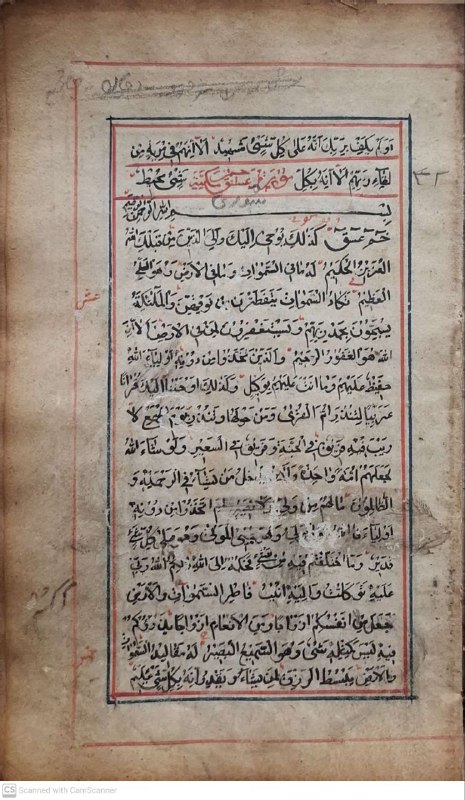 اولم يكف بربك انه على كل شئ شهيد الا انهم فى مرية من
لقاء ربهم الا انه بكل شئ محيط
بسم الله الرحمن الرحيم
حم عسق كذلك يوحى اليك والى الذين من قبلك الله
العزيز الحكيم له ما فى السموات وما فى الارض وهو العلى
العظيم تكاد السموات يتفطرن من فوقهن والملئكة
يسبحون بحمد ربهم ويستغفرون لمن فى الارض الا ان
الله هو الغفور الرحيم والذين اتخذوا من دونه اولياء الله
حفيظ عليهم وما انت عليهم بوكيل وكذلك اوحينا اليك قرانا
عربيا لتنذر ام القرى ومن حولها وتنذر يوم الجمع لا
ريب فيه فريق فى الجنة وفريق فى السعير ولو شاء الله
لجعلهم امة واحدة ولكن يدخل من يشاء فى رحمته و
الظالمون ما لهم من ولى ولا نصير ام اتخذوا من دونه
اولياء فالله هو الولى وهو يحيى الموتى وهو على كل شئ
قدير وما اختلفتم فيه من شئ فحكمه الى الله ذلكم الله ربى
عليه توكلت واليه انيب فاطر السموات والارض
جعل لكم من انفسكم ازواجا ومن الانعام ازواجا يذرؤكم
فيه ليس كمثله شئ وهو السميع البصير له مقاليد السموات
والارض يبسط الرزق لمن يشاء ويقدر انه بكل شئ عليم
CS Scanned with CamScanner